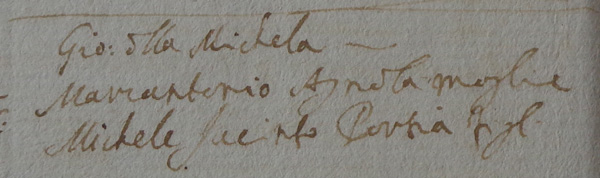 Gio: dlla Michela —
Marcantonio Agnola moglie
Michele Jacinto Porzia figl.